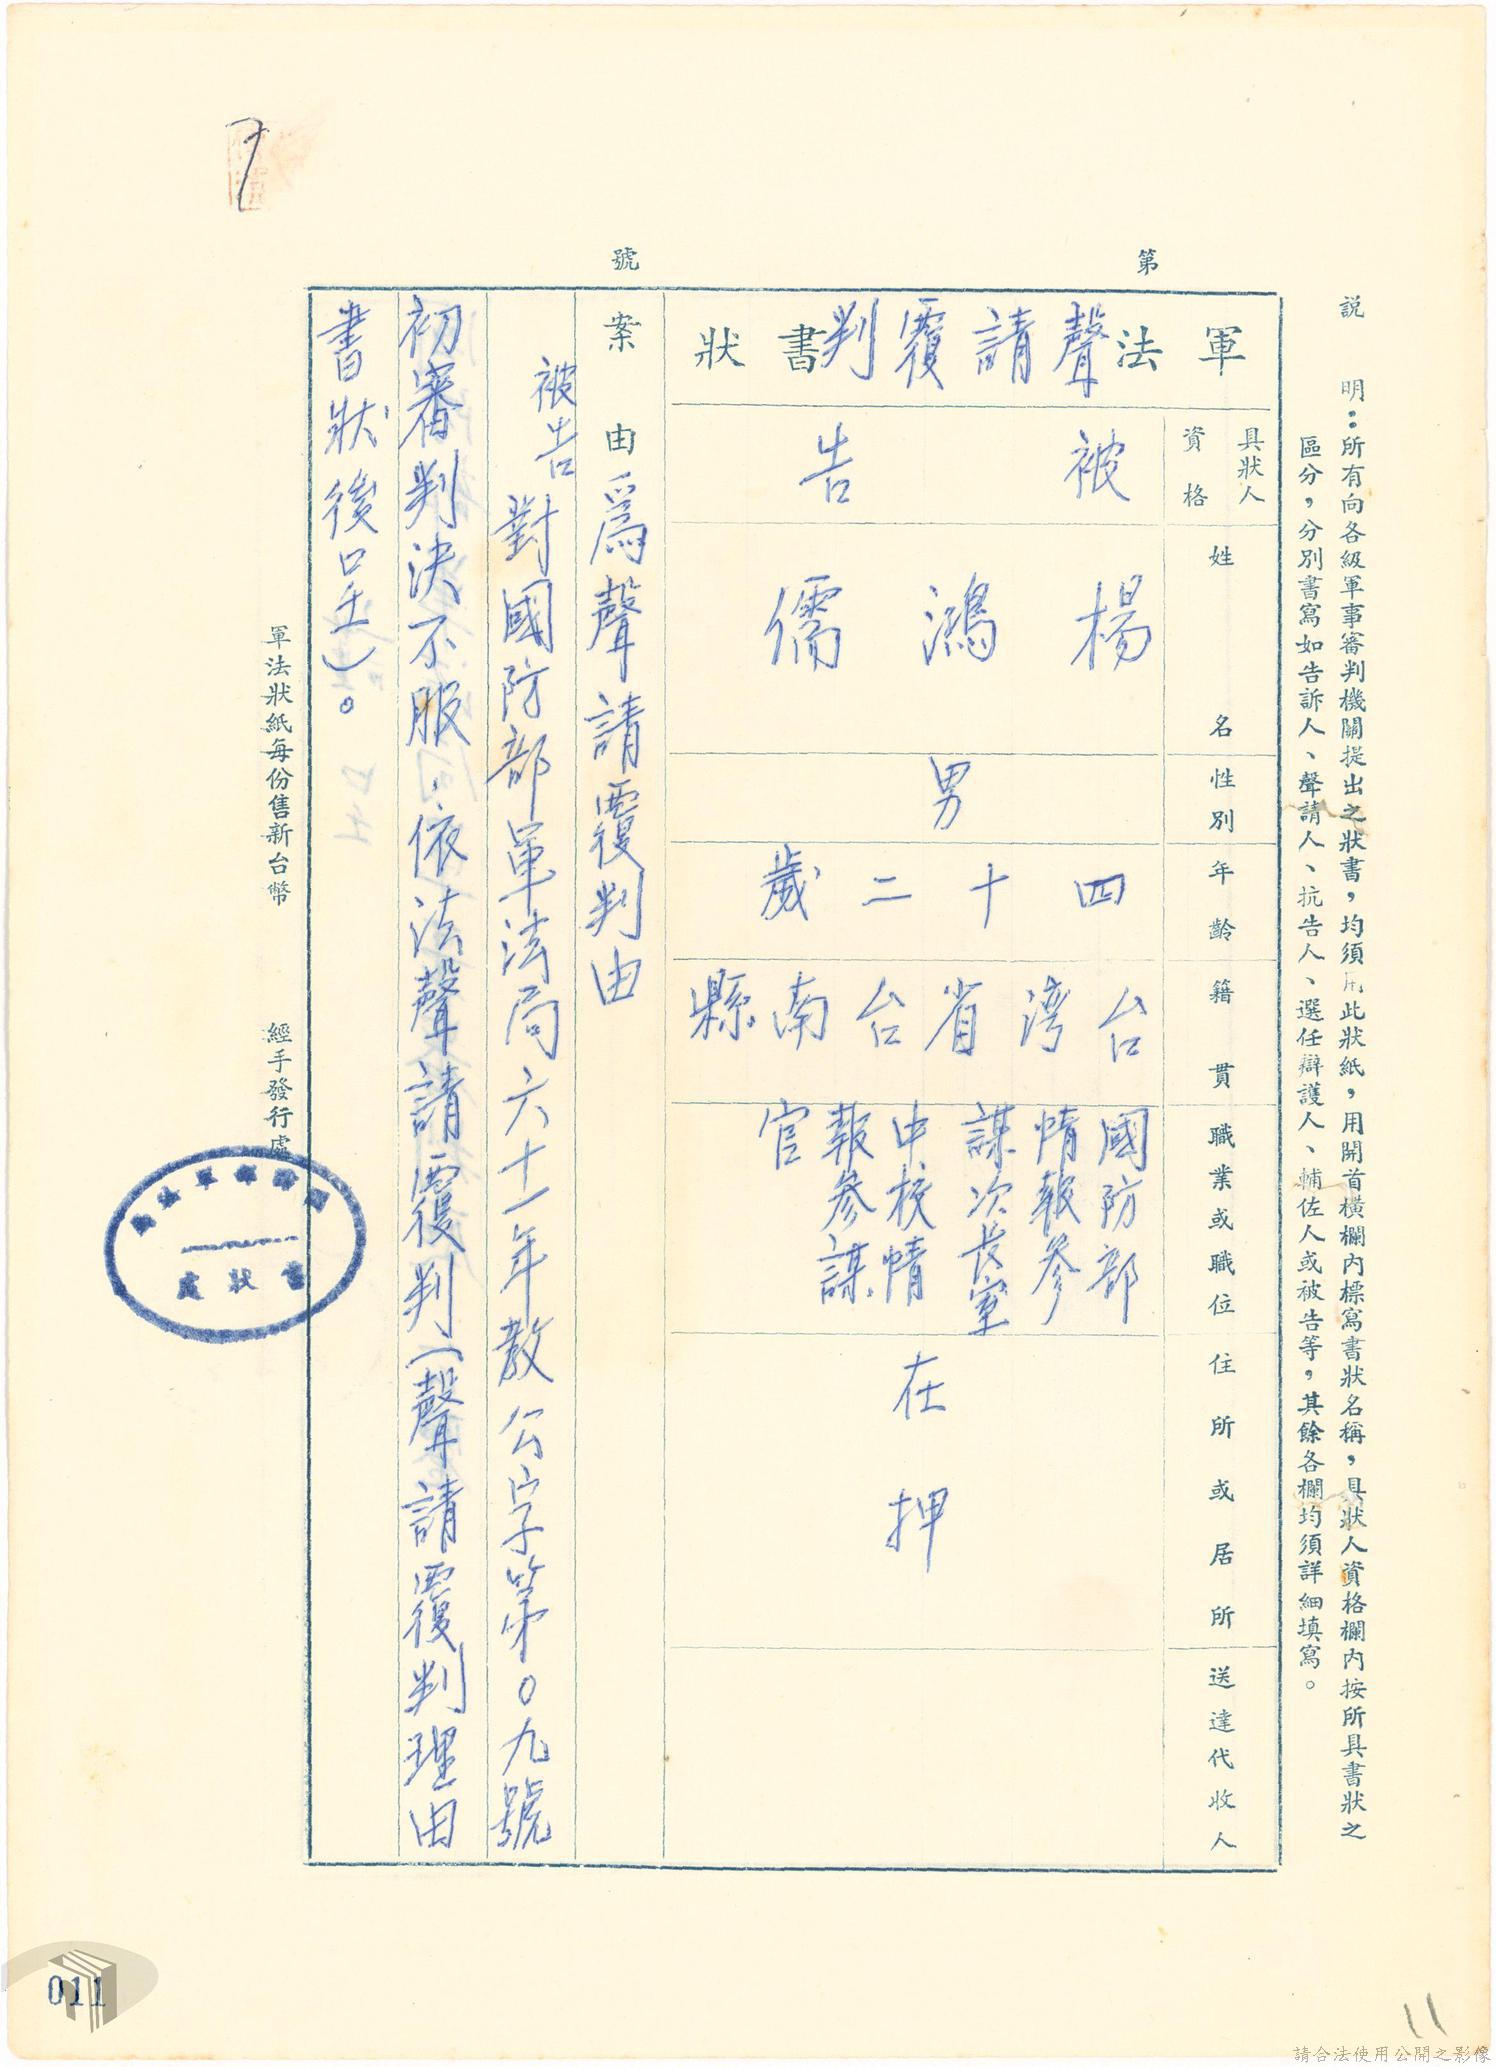 第　號
說　明：所有向各級軍事審判機關提出之狀書，均須用此狀紙，用開首橫欄內標寫書狀名稱，具狀人資格欄內按所具書狀之
區分，分別書寫如告訴人、聲請人、抗告人、選任辯護人、輔佐人或被告等，其餘各欄均須詳細填寫。
軍法聲請覆判書狀
具狀人資格
被告
姓名
楊鴻儒
性別
男
年齡
四十二歲
籍貫
台湾省台南縣
職業或職位
國防部
情報參
謀次長室
中校情
報參謀
官
住所或居所
在押
送達代收人
案由　為聲請覆判由
被告對國防部軍法局六十一年教公字第〇九號
初審判決不服，依法聲請覆判（聲請覆判理由
書狀後呈）。
軍法狀紙每份售新台幣
經手發行處
書狀處
011
11
請合法使用公開之影像